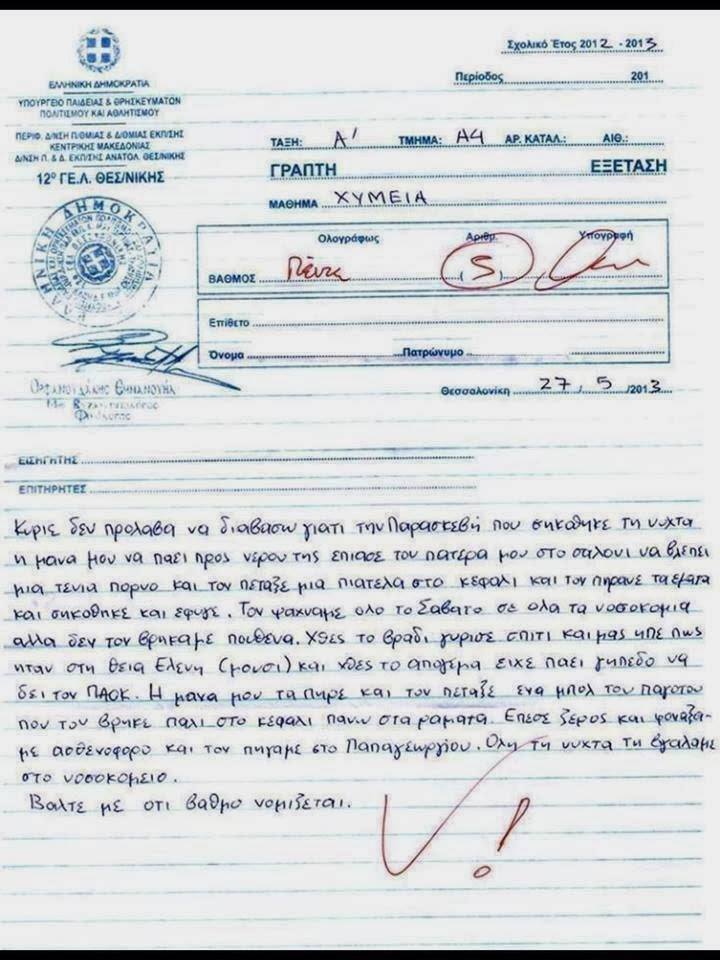 Σχολικό Έτος 2012 - 2013
Περίοδος 201
ΕΛΛΗΝΙΚΗ ΔΗΜΟΚΡΑΤΙΑ
ΥΠΟΥΡΓΕΙΟ ΠΑΙΔΕΙΑΣ & ΘΡΗΣΚΕΥΜΑΤΩΝ
ΠΟΛΙΤΙΣΜΟΥ ΚΑΙ ΑΘΛΗΤΙΣΜΟΥ
ΠΕΡΙΦ. Δ/ΝΣΗ Π/ΘΜΙΑΣ & Δ/ΘΜΙΑΣ ΕΚΠ/ΣΗΣ
ΚΕΝΤΡΙΚΗΣ ΜΑΚΕΔΟΝΙΑΣ
Δ/ΝΣΗ Π. & Δ. ΕΚΠ/ΣΗΣ ΑΝΑΤΟΛ. ΘΕΣ/ΝΙΚΗΣ
12ο ΓΕ.Λ. ΘΕΣ/ΝΙΚΗΣ
ΤΑΞΗ: Α' ΤΜΗΜΑ: Α4 ΑΡ. ΚΑΤΑΛ.: ΑΙΘ.:
ΓΡΑΠΤΗ ΕΞΕΤΑΣΗ
ΜΑΘΗΜΑ ΧΥΜΕΙΑ
Ολογράφως Αριθμ. Υπογραφή
ΒΑΘΜΟΣ Πέντε (5)
Επίθετο
Όνομα Πατρώνυμο
Θεσσαλονίκη 27, 5 /2013
ΕΙΣΗΓΗΤΗΣ
ΕΠΙΤΗΡΗΤΕΣ
Κυριε δεν προλαβα να διαβασω γιατι την Παρασκεβή που σηκοθηκε τη νυχτα
η μανα μου να παει προς νερου της επιασε τον πατερα μου στο σαλονι να βλεπει
μια τενια πορνο και τον πεταξε μια πιατελα στο κεφαλι και τον πηρανε τα εματα
και σηκοθηκε και εφυγε. Τον ψαχναμε ολο το Σαβατο σε ολα τα νοσοκομια
αλλα δεν τον βρηκαμε πουθενα. Χθες το βραδι γυρισε σπιτι και μας ηπε πως
ηταν στη θεια Ελενη (μουσι) και χθες το απογεμα ειχε παει γηπεδο να
δει τον ΠΑΟΚ. Η μανα μου τα πηρε και τον πεταξε ενα μπολ του παγοτου
που τον βρηκε παλι στο κεφαλι πανω στα ραματα. Επεσε ξερος και φοναξα-
με ασθενοφορο και τον πηγαμε στο Παπαγεωργιου. Ολη τη νυχτα τη βγαλαμε
στο νοσοκομειο.
Βαλτε με οτι βαθμο νομιζεται.
!